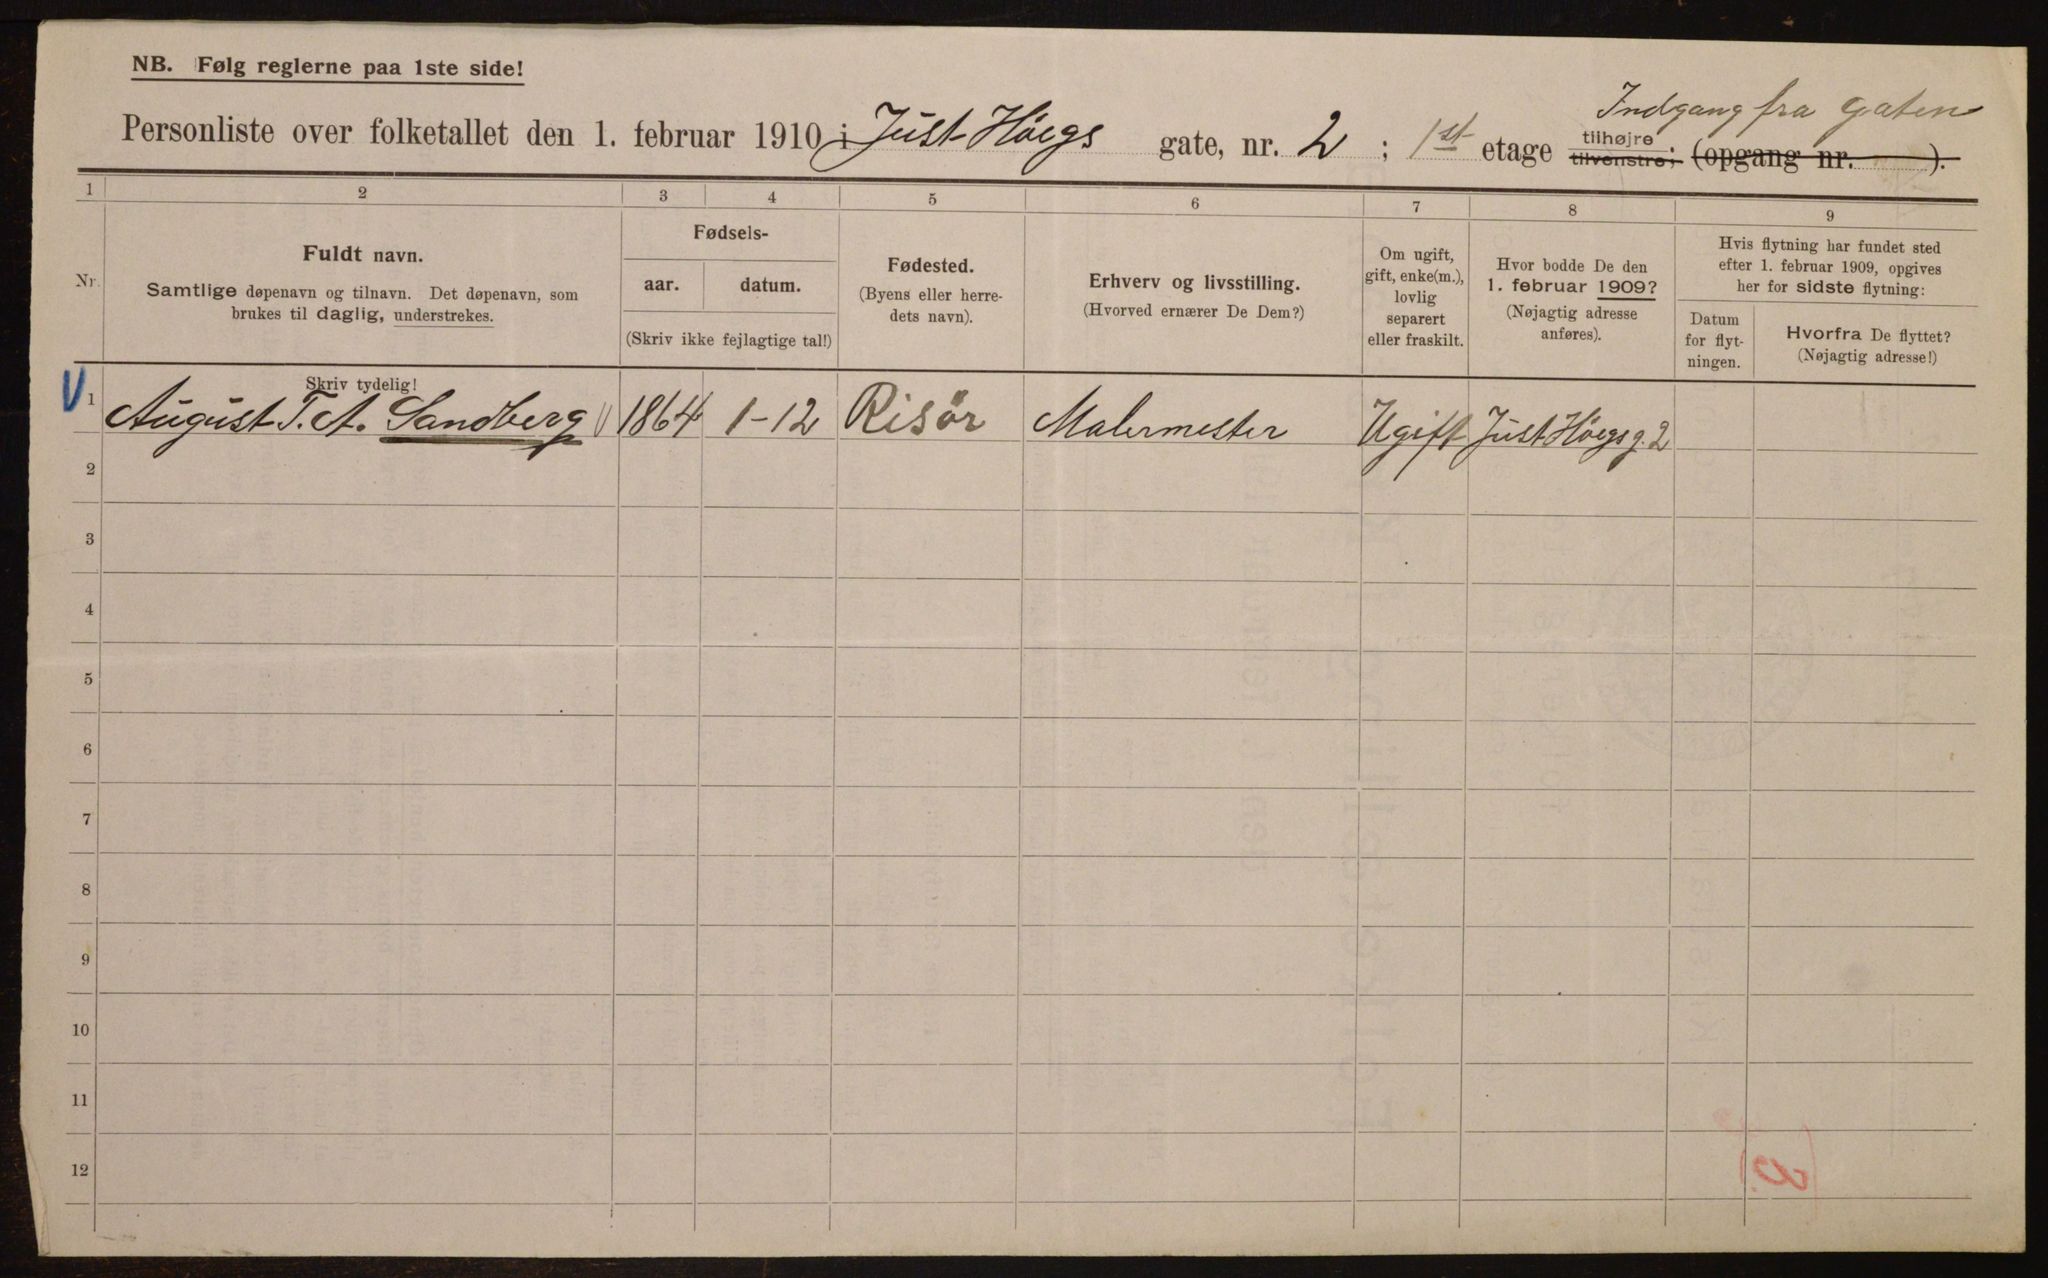 NB. Følg reglerne paa 1ste side!
Indgang fra gaten
Personliste over folketallet den 1. februar 1910 i Just Höegs gate, nr. 2 ; 1st etage tilhøjre tilvenstre; (opgang nr. ).
1 2 3 4 5 6 7 8 9
Nr.
Fuldt navn.
Samtlige døpenavn og tilnavn. Det døpenavn, som
brukes til daglig, understrekes.
Skriv tydelig!
Fødsels-
aar. datum.
(Skriv ikke fejlagtige tal!)
Fødested.
(Byens eller herre-
dets navn).
Erhverv og livsstilling.
(Hvorved ernærer De Dem?)
Om ugift,
gift, enke(m.),
lovlig
separert
eller fraskilt.
Hvor bodde De den
1. februar 1909?
(Nøjagtig adresse
anføres).
Hvis flytning har fundet sted
efter 1. februar 1909, opgives
her for sidste flytning:
Datum
for flyt-
ningen.
Hvorfra De flyttet?
(Nøjagtig adresse!)
1 August T. A. Sandberg 1864 1-12 Risör Malermester Ugift Just Höegsg. 2
2
3
4
5
6
7
8
9
10
11
12